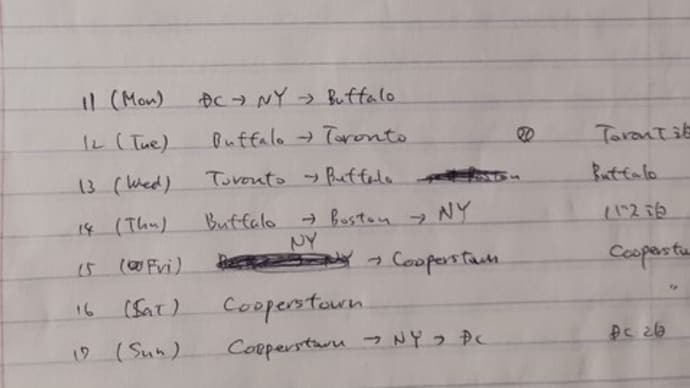 11 (Mon) DC → NY → Buffalo
12 (Tue) Buffalo → Toronto Toront泊
13 (Wed) Toronto → Buffalo Buffalo
14 (Thu) Buffalo → Boston → NY バス泊
15 (Fri) NY → Cooperstown Coopersto
16 (Sat) Cooperstown 〃
17 (Sun) Cooperstown → NY → DC DC泊